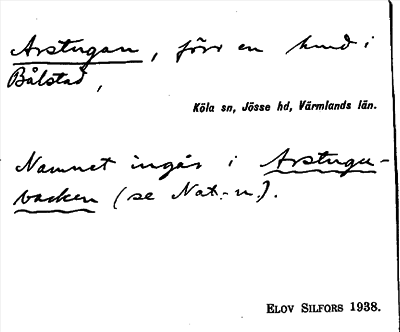 Arstugan, förr en hmd i
Bålstad,
Köla sn, Jösse hd, Värmlands län.
Namnet ingår i Arstugu-
backen (se Nat.-n.).
ELOV SILFORS 1938.